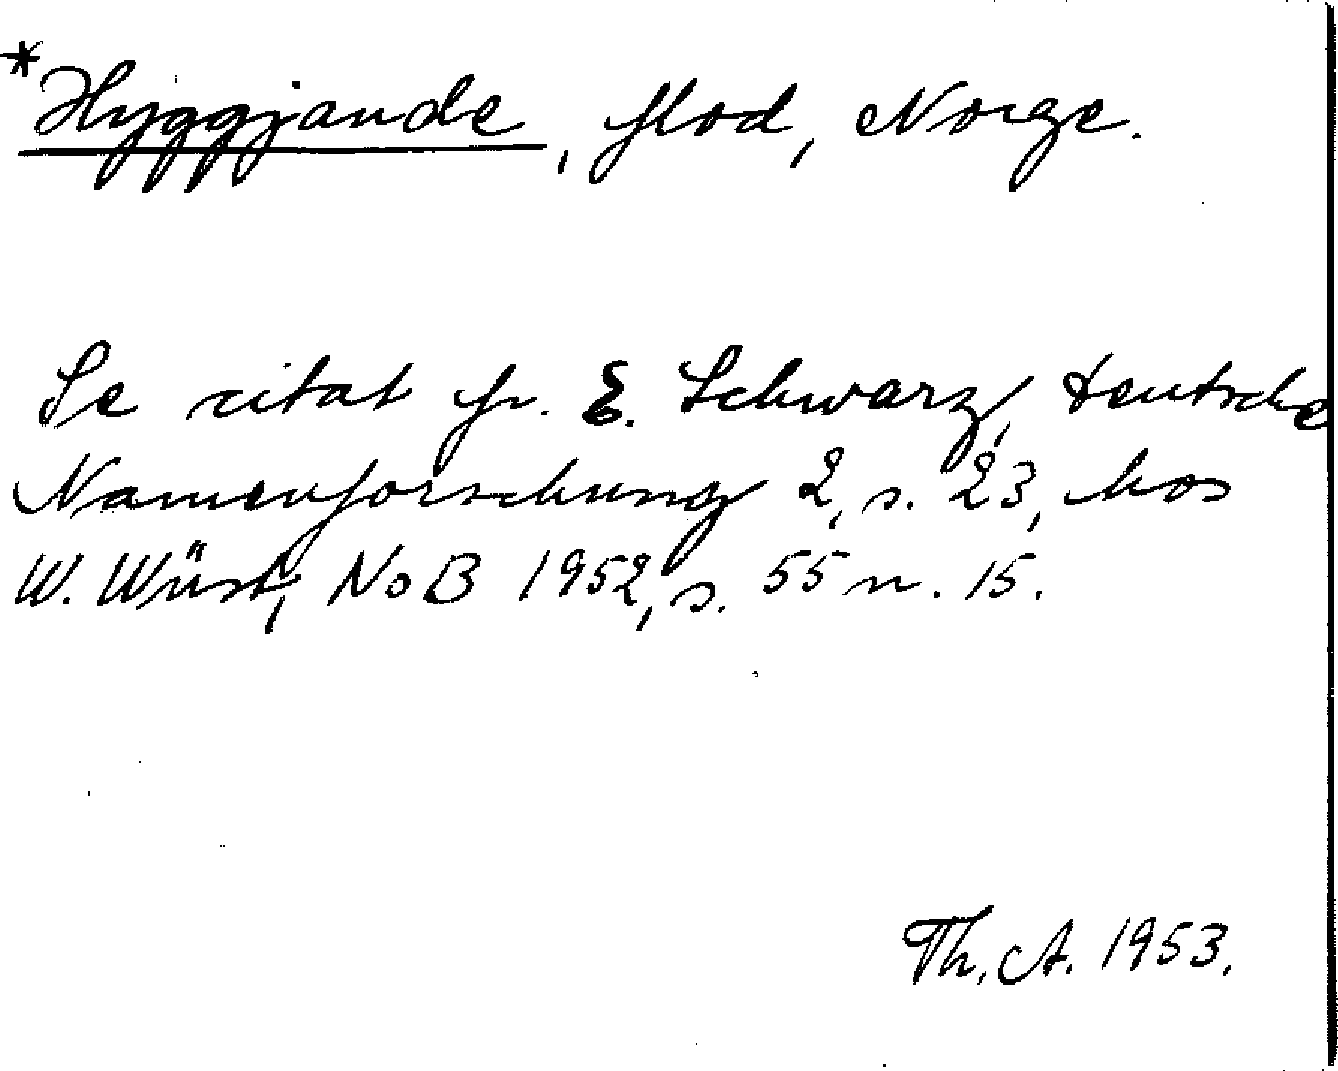 *Hyggjande, flod, Norge.
Se citat fr. E. Schwarz, Deutsche
Namenforschung 2, s. 23, hos
W. Wüst, NoB 1952, s. 55 n. 15.
Th. A. 1953.